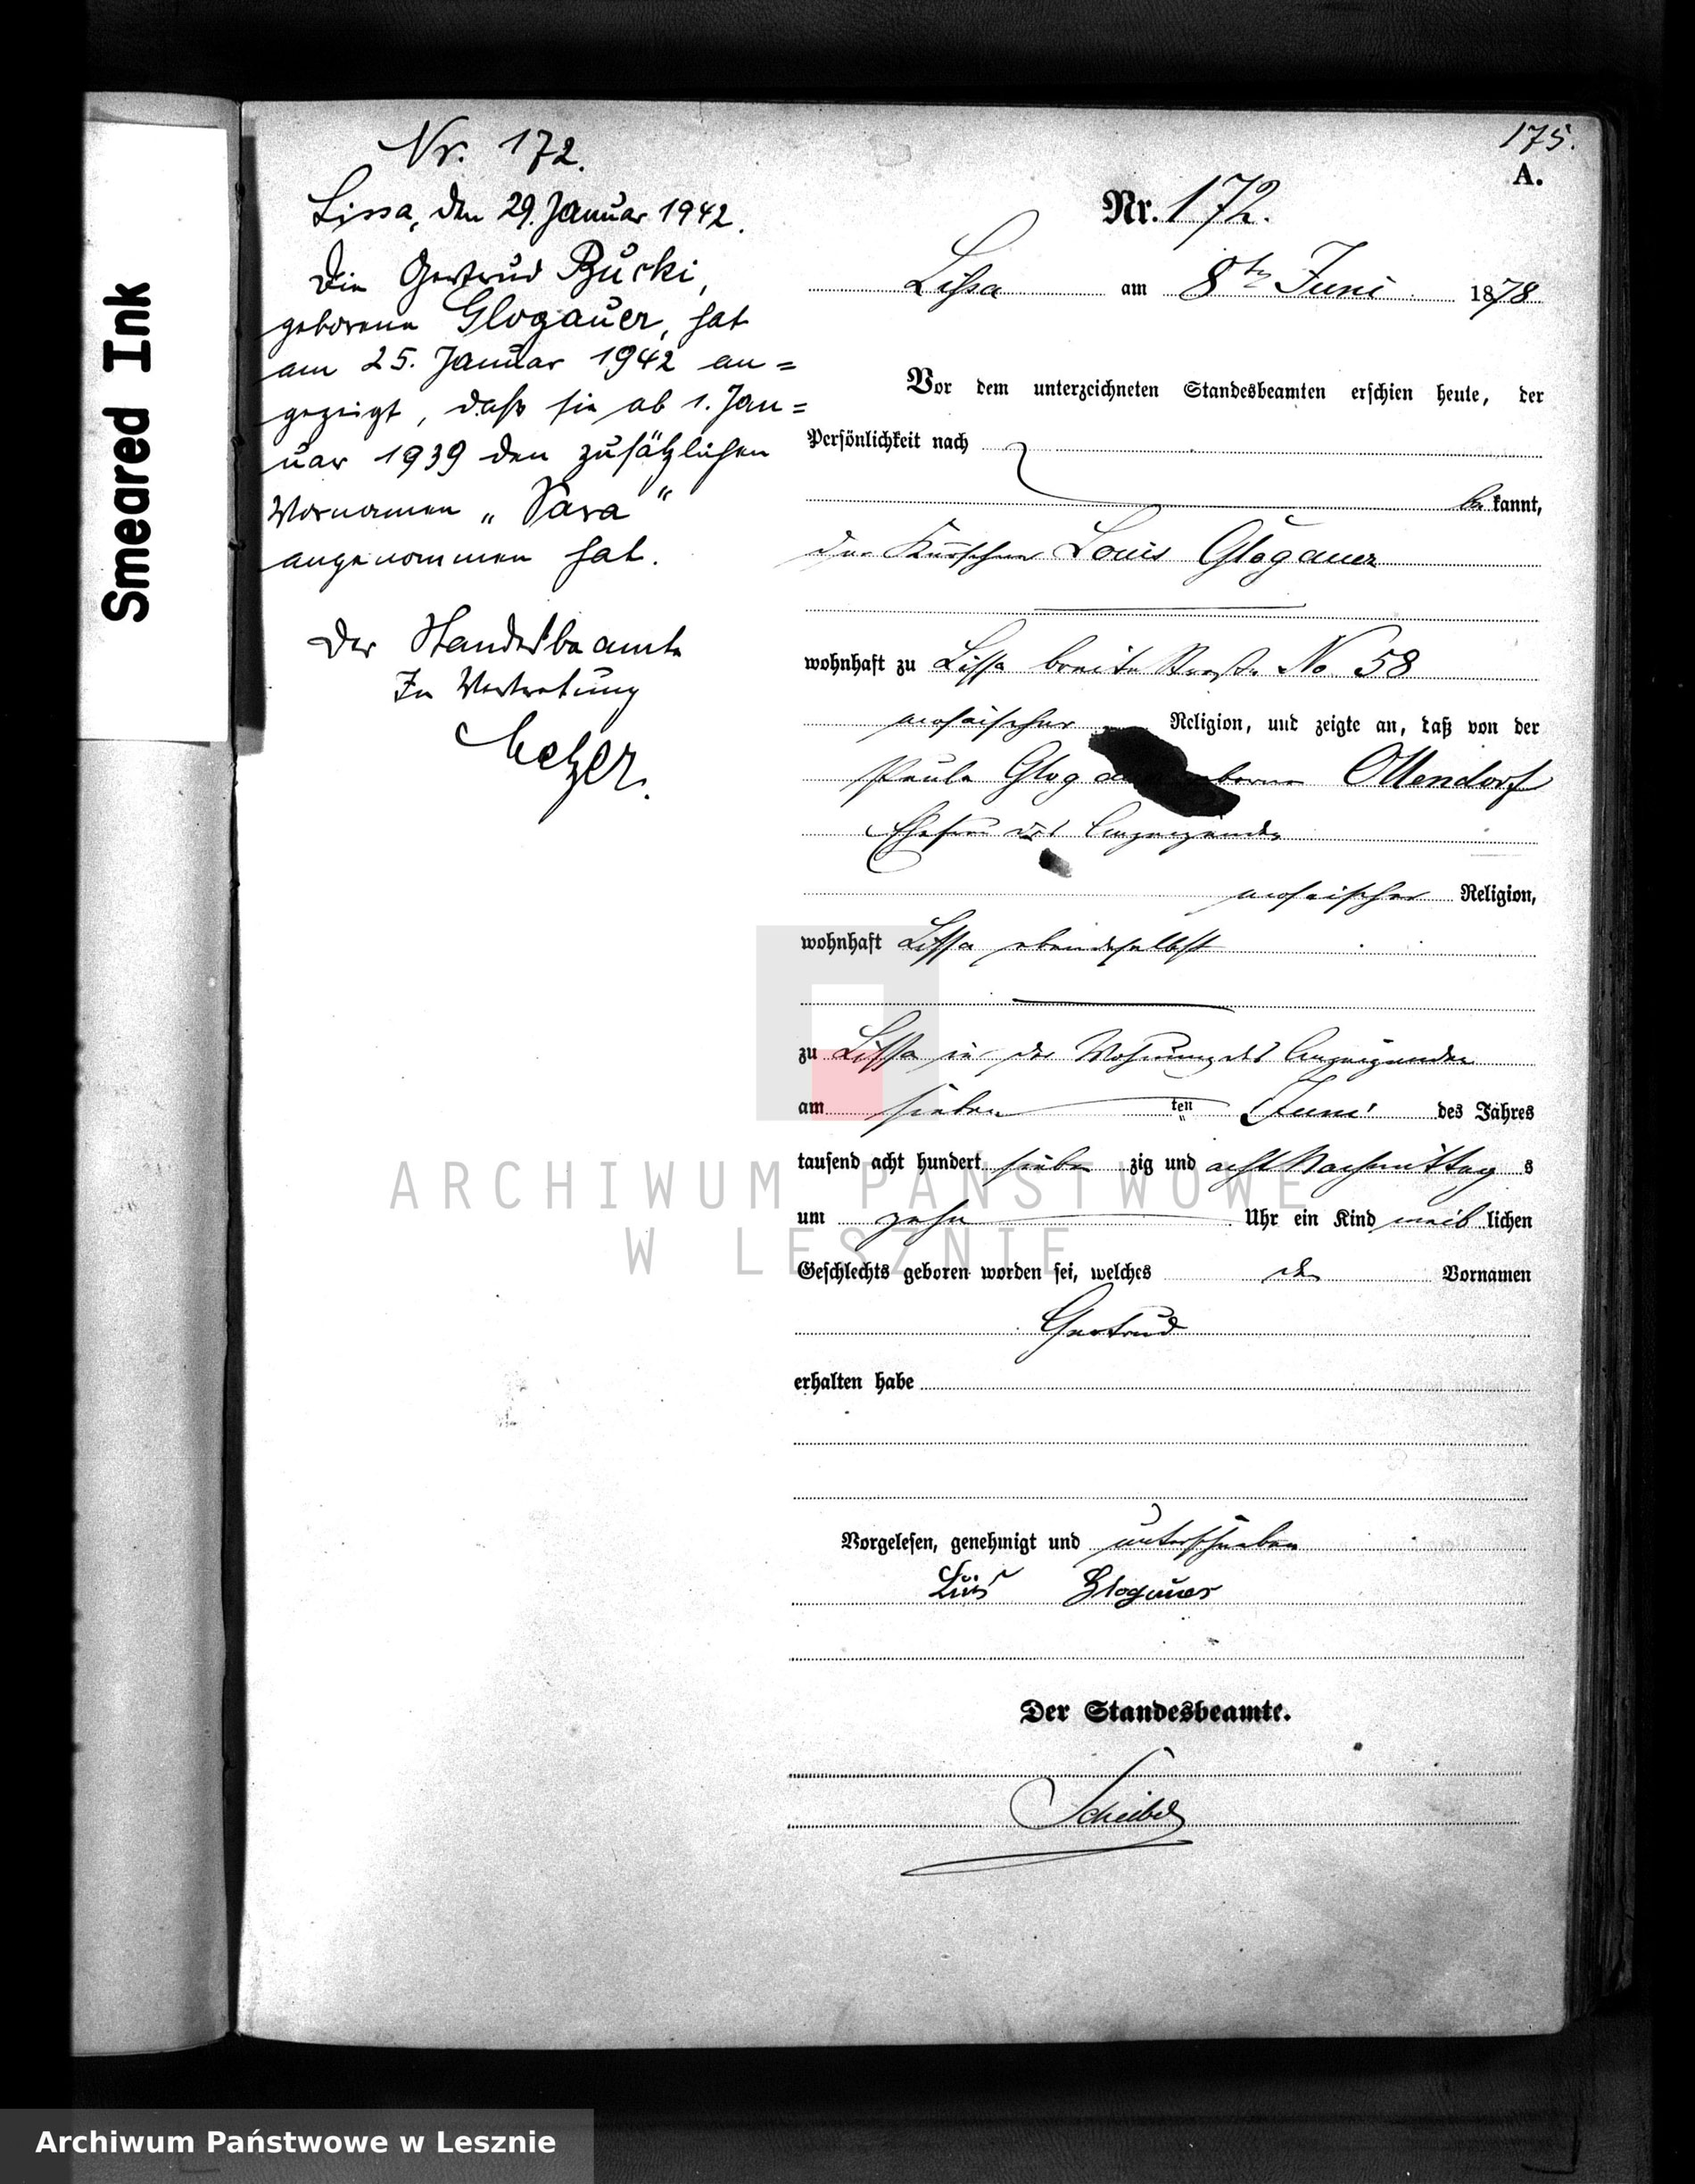 Smeared Ink
Nr. 172.
Lissa, den 29. Januar 1942.
Die Gertrud Bucki,
geborene Glogauer, hat
am 25. Januar 1942 an=
gezeigt, daß sie ab 1. Jan=
uar 1939 den zusätzlichen
Vornamen „Sara“
angenommen hat.
Der Standesbeamte
In Vertretung
175.
A.
Nr. 172.
Lissa am 8ten Juni 1878
Vor dem unterzeichneten Standesbeamten erschien heute, der
Persönlichkeit nach
be kannt,
der Kürschner Louis Glogauer
wohnhaft zu Lissa breite Straße No 58
mosaischer Religion, und zeigte an, daß von der
Paula Glogauer geborne Ollendorf
Ehefrau des Anzeigenden
mosaischer Religion,
wohnhaft Lissa ebendaselbst
zu Lissa in der Wohnung des Anzeigenden
am sieben ten Juni des Jahres
tausend acht hundert sieben zig und acht Nachmittag s
um zehn Uhr ein Kind weib lichen
Geschlechts geboren worden sei, welches den Vornamen
Gertrud
erhalten habe
Vorgelesen, genehmigt und unterschrieben
Luis Glogauer
Der Standesbeamte.
Scheibel
ARCHIWUM PAŃSTWOWE
W LESZNIE
Archiwum Państwowe w Lesznie